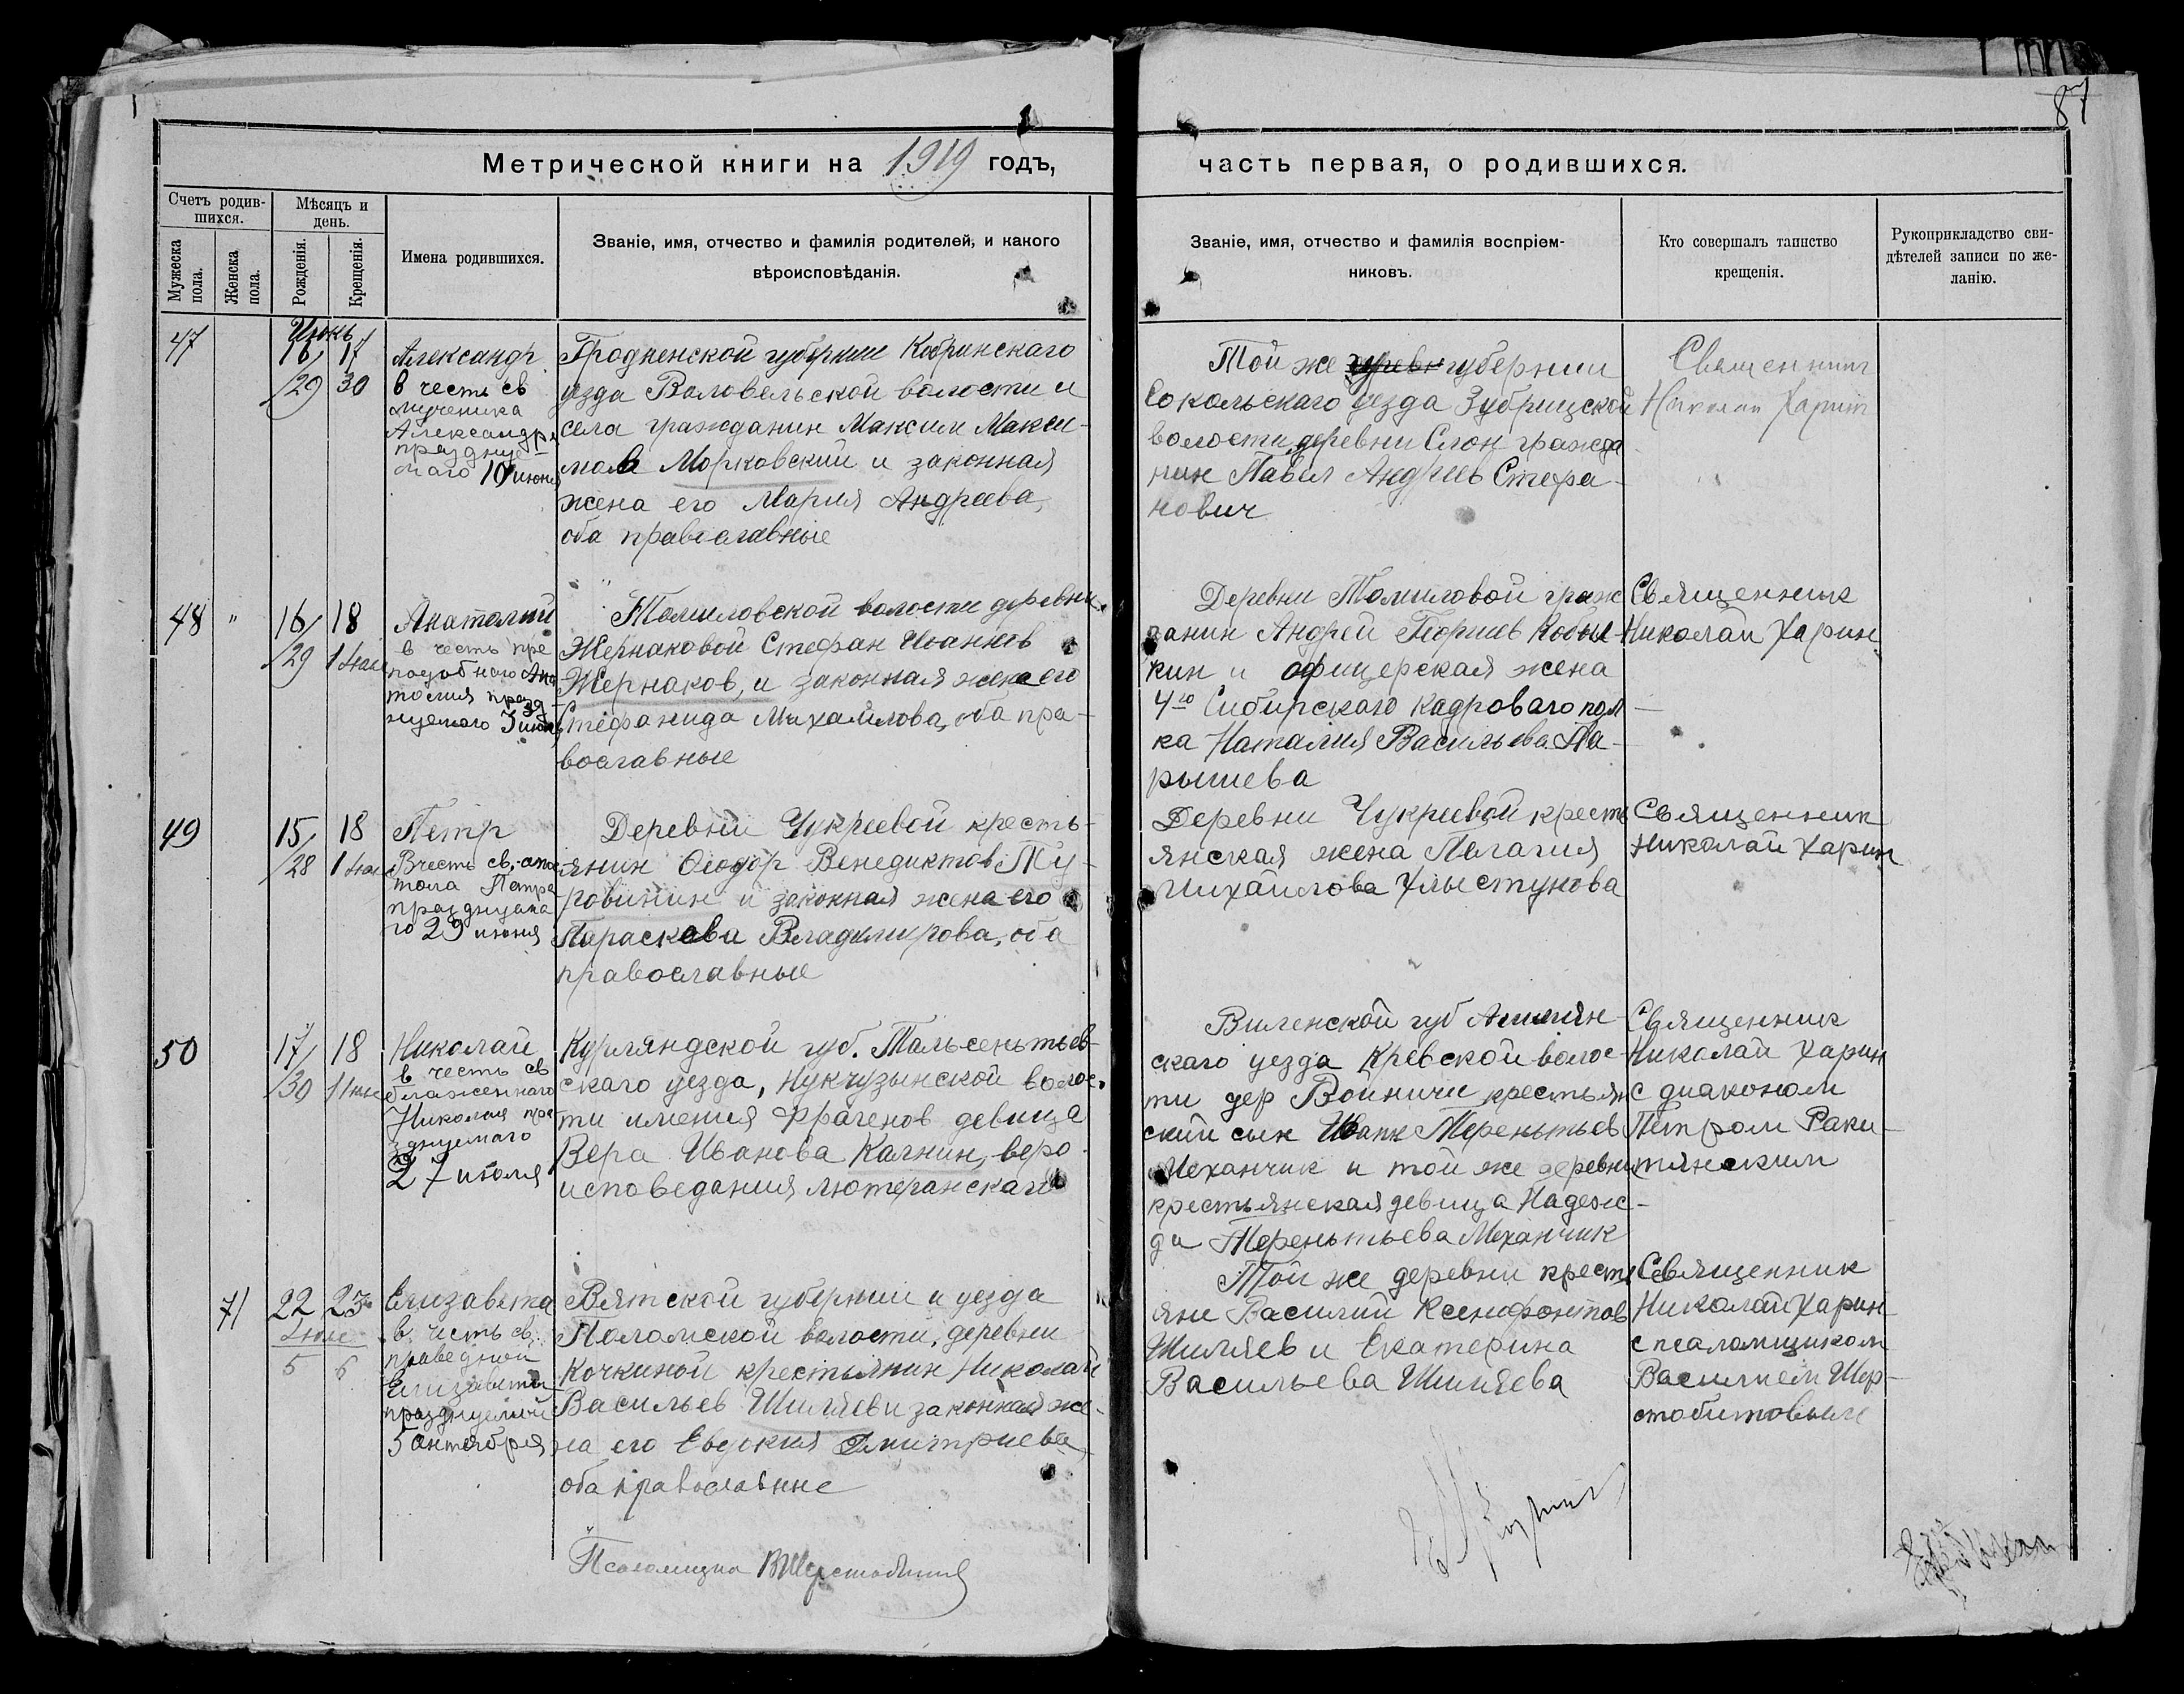 87
Метрической книги на 1919 годъ,
часть первая, о родившихся.
Счетъ родив-
шихся.
Мужеска
пола.
Женска
пола.
Мѣсяцъ и
день.
Рожденія.
Крещенія.
Имена родившихся.
Званіе, имя, отчество и фамилія родителей, и какого
вѣроисповѣданія.
Званіе, имя, отчество и фамилія воспріем-
никовъ.
Кто совершалъ таинство
крещенія.
Рукоприкладство сви-
дѣтелей записи по же-
ланію.
47
Июнь
16/29
17
30
Александр
в честь св
мученика
Александра
празднуе-
маго 10 июня
Гродненской губернии Кобринскаго
уезда Воловельской волости и
села гражданин Максим Макси-
мов Морковский и законная
жена его Мария Андреева,
оба православные
Той же губернии
Сокольскаго уезда Зубрицской
волости деревни Слон гражда
нин Павел Андреев Стефа-
нович
Священник
Николай Харин
48 "
16/29
18
1 Июля
Анатолий
в честь пре
подобного Ана
толия празд-
нуемого 3 июля
Томиловской волости деревни
Жернаковой Стефан Иоаннов
Жернаков, и законная жена его
Стефанида Михайлова, оба пра-
вославные
Деревни Томиловой граж
данин Андрей Георгиев Кобыл-
кин и офицерская жена
4го Сибирскаго Кадроваго пол
ка Наталия Васильева Ла-
рышева
Священник
Николай Харин
49
15/28
18
1 Июля
Петр
В честь св. апос
тола Петра
празднуема
го 29 июня
Деревни Чукреевой кресть-
янин Феодор Венедиктов Ту-
ровинин и законная жена его
Параскева Владимирова, оба
православные
Деревни Чукреевой кресть
янская жена Пелагия
Михайлова Хлыстунова
Священник
Николай Харин
50
17/30
18
1 Июля
Николай
в честь св
блаженнаго
Николая пра
зднуемаго
27 июля
Курляндской губ. Тальсеньтьев-
скаго уезда, Нукчузынской волос-
ти имения Фрагенов девица
Вера Иванова Калнин, веро
исповедания лютеранскаго
Виленской губ Ашмян-
скаго уезда Кревской волос-
ти дер Войничи крестьян
ский сын Иван Терентьев
Механчик и той же деревни
крестьянская девица Надеж-
да Терентьева Механчик
Священник
Николай Харин
с диаконом
Петром Раки-
тянским
71
22
Июля
5
23
6
Елизавета
в честь св.
праведной
Елизаветы
празднуемой
5 сентября
Вятской губернии и уезда
Поломской волости, деревни
Кочкиной крестьянин Николай
Васильев Шиляев и законная же-
на его Евдокия Дмитриева,
оба православные
Той же деревни кресть
яне Василий Ксенофонтов
Шиляев и Екатерина
Васильева Шиляева
Священник
Николай Харин
с псаломщиком
Василием Шер-
стобитовым
Псаломщик В Шерстобитов